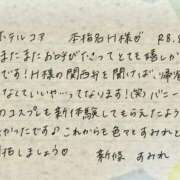 ホテルコア 本指名H様♡ R8.
またまたお呼びだってとても嬉しか
です!H様の関西弁を聞けば、帰
なくていいや…ってなります!(笑)バニー
のコスプレも新体験してもらえたよう
かったです♪これからも色々とすみれと
拓しましょう♡
新條 すみれ